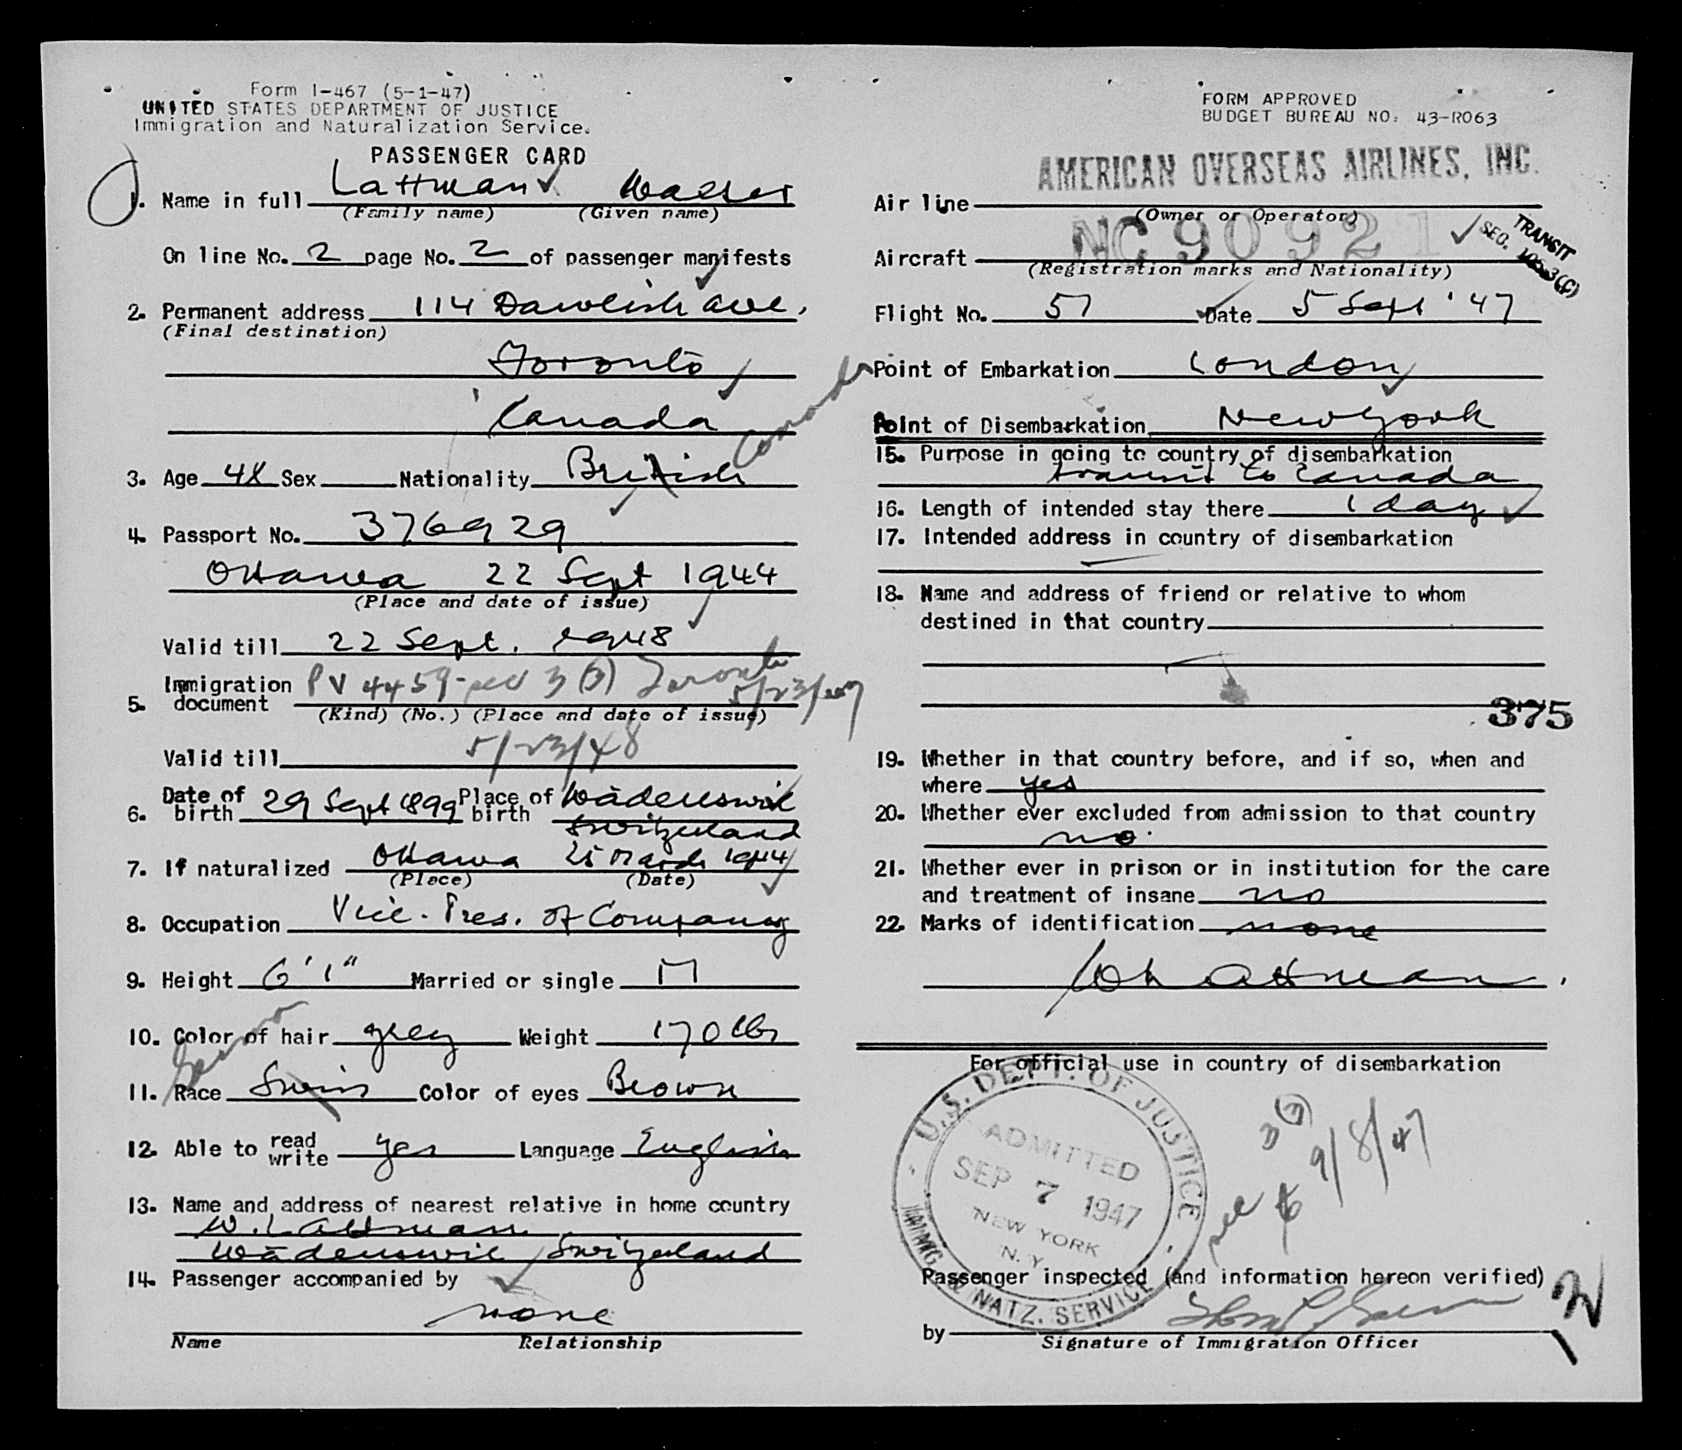 Form I-467 (5-1-47)
UNITED STATES DEPARTMENT OF JUSTICE
Immigration and Naturalization Service.
PASSENGER CARD
1. Name in full Lattman Walter
(Family name) (Given name)
On line No. 2 page No. 2 of passenger manifests
2. Permanent address 114 Dawlish Ave.
(Final destination)
Toronto
Canada
3. Age 48 Sex Nationality British Canada
4. Passport No. 376929
Ottawa 22 Sept 1944
(Place and date of issue)
Valid till 22 Sept. 1948
5. Immigration document PV 4459 - sec 3 (3) Toronto 5/23/47
(Kind) (No.) (Place and date of issue)
Valid till 5/23/48
6. Date of birth 29 Sept 1899 Place of birth Wädenswil
Switzerland
7. If naturalized Ottawa 25 March 1944
(Place) (Date)
8. Occupation Vice-Pres. of Company
9. Height 6'1" Married or single M
10. Color of hair grey Weight 170 lbs
German
11. Race Swiss Color of eyes Brown
12. Able to read write yes Language English
13. Name and address of nearest relative in home country
W. Lattman
Wädenswil, Switzerland
14. Passenger accompanied by
none
Name Relationship
FORM APPROVED
BUDGET BUREAU NO. 43-R063
AMERICAN OVERSEAS AIRLINES, INC.
Air line
(Owner or Operator)
NC 90921
TRANSIT
SEC.
Aircraft
(Registration marks and Nationality)
Flight No. 57 Date 5 Sept '47
Point of Embarkation London
Point of Disembarkation New York
15. Purpose in going to country of disembarkation
transit to Canada
16. Length of intended stay there 1 day
17. Intended address in country of disembarkation
18. Name and address of friend or relative to whom
destined in that country
375
19. Whether in that country before, and if so, when and
where yes
20. Whether ever excluded from admission to that country
no
21. Whether ever in prison or in institution for the care
and treatment of insane no
22. Marks of identification none
W Lattman.
For official use in country of disembarkation
U.S. DEPT. OF JUSTICE
ADMITTED
SEP 7 1947
NEW YORK
N. Y.
IMMIG. & NATZ. SERVICE
3 (3)
9/8/47
Passenger inspected (and information hereon verified)
by
Signature of Immigration Officer